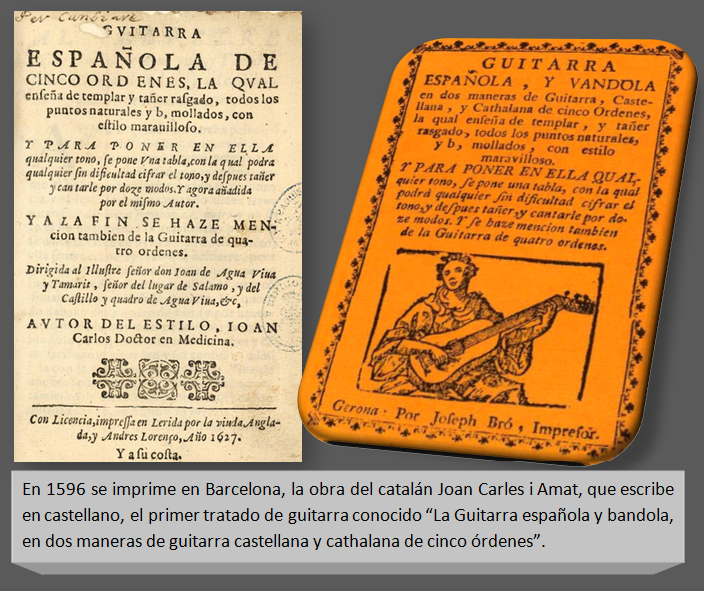 Per Cunbiave
GVITARRA
ESPAÑOLA DE
CINCO ORDENES, LA QVAL
enseña de templar y tañer rasgado, todos los
puntos naturales y b, mollados, con
estilo marauilloso.
Y PARA PONER EN ELLA
qualquier tono, se pone vna tabla, con la qual podra
qualquier sin dificultad cifrar el tono, y despues tañer
y cantarle por doze modos. Y agora añadida
por el mismo Autor.
Y A LA FIN SE HAZE MEN-
cion tambien de la Guitarra de qua-
tro ordenes.
Dirigida al Illustre señor don Ioan de Agua Viua
y Tamarit, señor del lugar de Salamo, y del
Castillo y quadro de Agua Viua, &c,
AVTOR DEL ESTILO, IOAN
Carlos Doctor en Medicina.
Con Licencia, impressa en Lerida por la viuda Angla-
da, y Andres Lorenço, Año 1627.
Y a su costa.
GUITARRA
ESPAÑOLA, Y VANDOLA
en dos maneras de Guitarra, Caste-
llana, y Cathalana de cinco Ordenes,
la qual enseña de templar, y tañer
rasgado, todos los puntos naturales,
y b, mollados, con estilo
maravilloso.
Y PARA PONER EN ELLA QUAL-
quier tono, se pone una tabla, con la qual
podrà qualquier sin dificultad cifrar el
tono, y despues tañer, y cantarle por do-
ze modos. Y se haze mencion tambien
de la Guitarra de quatro ordenes.
Gerona: Por Joseph Bró, Impresor.
En 1596 se imprime en Barcelona, la obra del catalán Joan Carles i Amat, que escribe
en castellano, el primer tratado de guitarra conocido “La Guitarra española y bandola,
en dos maneras de guitarra castellana y cathalana de cinco órdenes”.